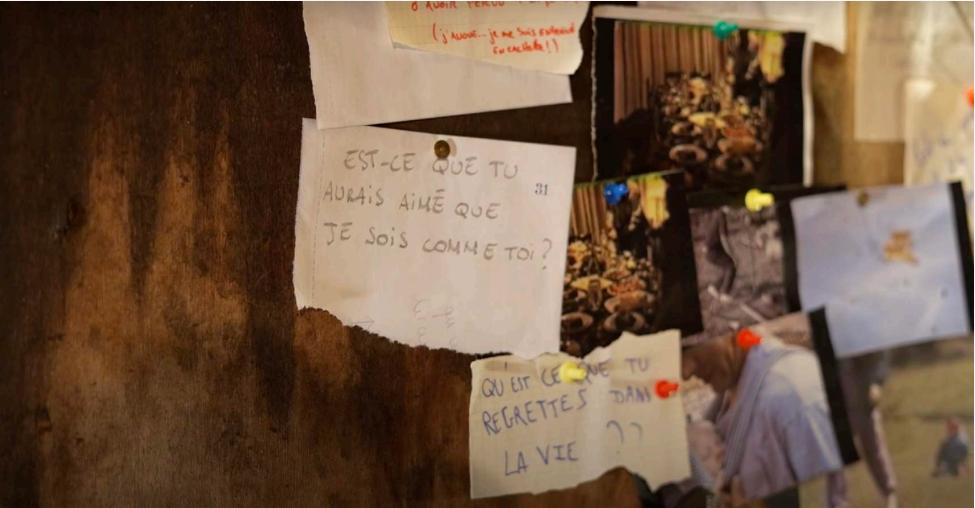 (j'avoue... je me suis
EN CACHETTE!)
EST-CE QUE TU
31
AURAIS AIMÉ QUE
JE SOIS COMME TOI?
QU'EST CE QUE TU
REGRETTES DANS
LA VIE ??